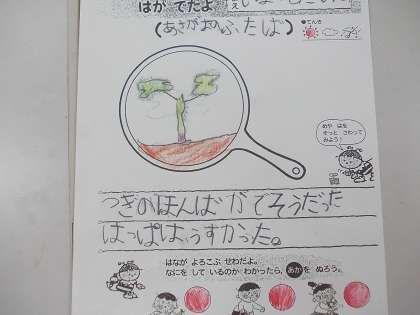 はが でたよ
(あさがおのふたば)
●てんき
めや はを
そっと さわって
みよう!
つぎのほんばがでそうだった
はっぱは、うすかった。
はなが よろこぶ せわだよ。
なにを して いるのか わかったら、あかを ぬろう。